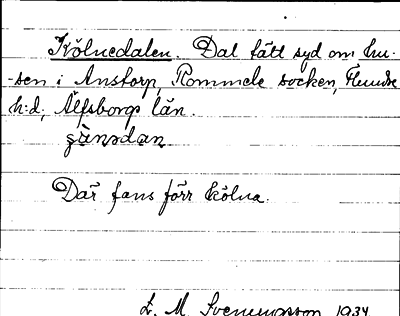 Kölnedalen. Dal tätt syd om hu-
-sen i Anstorp, Rommele socken, Flundre
h:d, Älfsborgs län.
Där fans förr kölna.
L. M. Svenungsson 1934